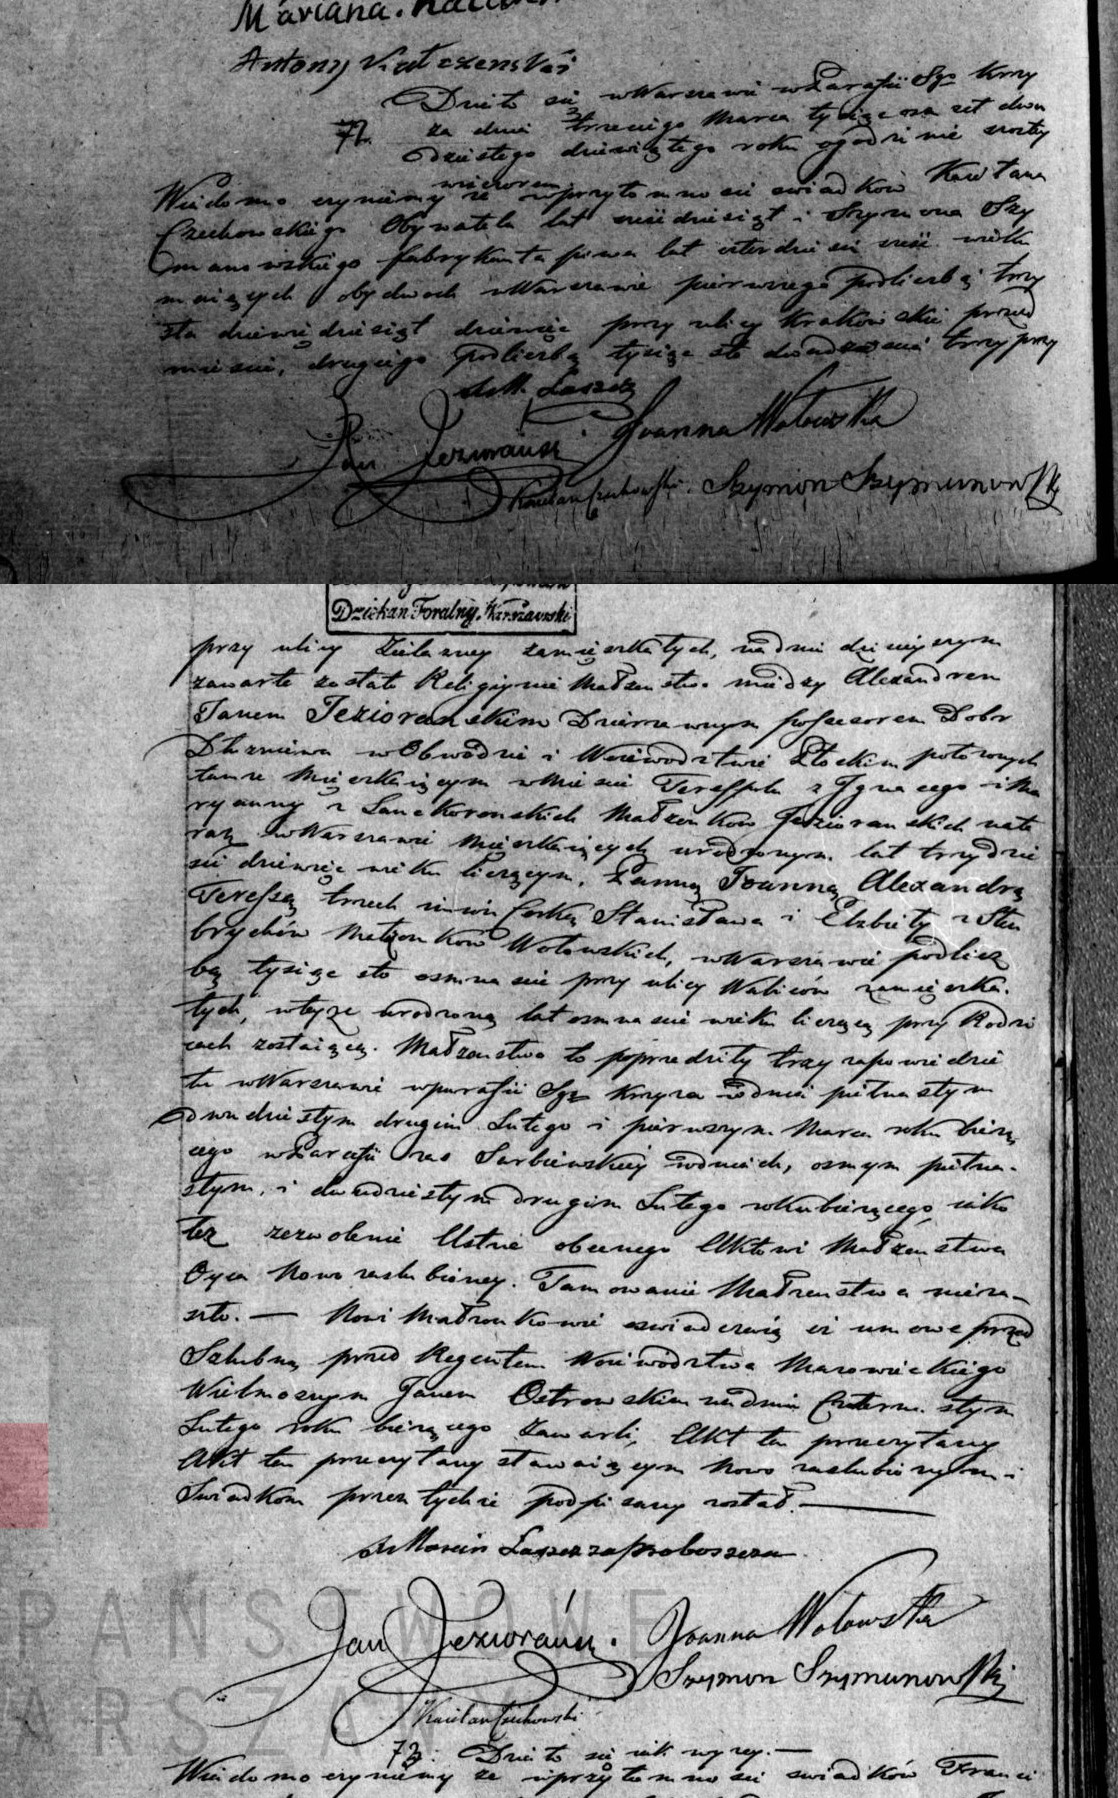 Mariana
Antony
Działo się w Warszawie w Parafii Sgo Krzy
72. za dnia trzeciego Marca tysiąc osm set dwu
dziestego dziewiątego roku o godzinie szosty
wieczorem
Wiadomo czyniemy ze w przytomnosci swiadków Kaietana
Czechowskiego Obywatela lat sześdziesiąt i Szymona Szy
manowskiego fabrykanta piwa lat czterdzieści sześć wieku
maiących obydwoch w Warszawie pierwszego pod liczbą trzy
sta dziewiędziesiąt dziewięć przy ulicy Krakowskie przed
miescie, drugiego pod liczbą tysiąc sto dwadziescia trzy przy
X M. Laszcz
Jan Jezioranski Joanna Wołowska
Kaietan Czechowski. Szymon Szymanowski
Dziekan Foralny Warszawski
przy ulicy Żelazney zamięszkałych, na dniu dzisieyszym
zawarte zostało Religiynie Małzenstwo między Alexandrem
Janem Jezioranskim Dzierzawnym possesorem Dobr
w Obwodzie i Woiewodztwie Płockim położonych
tamże mięszkaiącym w miescie Terespolu z Ignacego i Ma
ryanny z Lanckoronskich Małzonków Jezioranskich nate
raz w Warszawie mięszkaiących urodzonym lat trzydzie
sci dziewięc wieku liczącym, Panną Joanną Alexandrą
Teressą trzech imion Corką Stanisława i Elzbiety z Szu
brychów Małzonków Wołowskich, w Warszawie pod licz
bą tysiąc sto osmnascie przy ulicy Waliców zamięszka
łych, w teyze urodzoną lat osmnascie wieku liczącą przy Rodzi
cach zostaiącą. Małzenstwo to poprzedziły trzy zapowiedzie
tu w Warszawie w parafii Sgo Krzyza w dniu piętnastym
dwudziestym drugim Lutego i pierwszym Marca roku biezą
cego w Parafii zas Sarbiewskiey w dniach, osmym piętna-
stym, i dwudziestym drugim Lutego roku bieżącego, iako
tez zezwolenie Ustne obecnego Aktowi Małzenstwa
Oyca Nowozaslubioney. Tamowanie Małzenstwa nieza-
szło. — Nowi Małzonkowie oswiadczaią iz umowę przed
Szlubną przed Regentem Woiewództwa Mazowieckiego
Wielmoznym Janem Ostrowskim na dniu Czternastym
Lutego roku bieżącego Zawarli, Akt ten przeczytany
Akt ten przeczytany stawaiącym Nowo zaslubionym i
Swiadkom przez tychże podpisany został. —
X Marcin Laszcz za Proboszcza
Jan Jezioranski. Joanna Wołowska
Szymon Szymanowski
Kaietan Czechowski
PAŃSTWOWE
ARSZA
73. Działo się iak wyzey. —
Wiadomo czyniemy ze w przytomnosci swiadków Franci